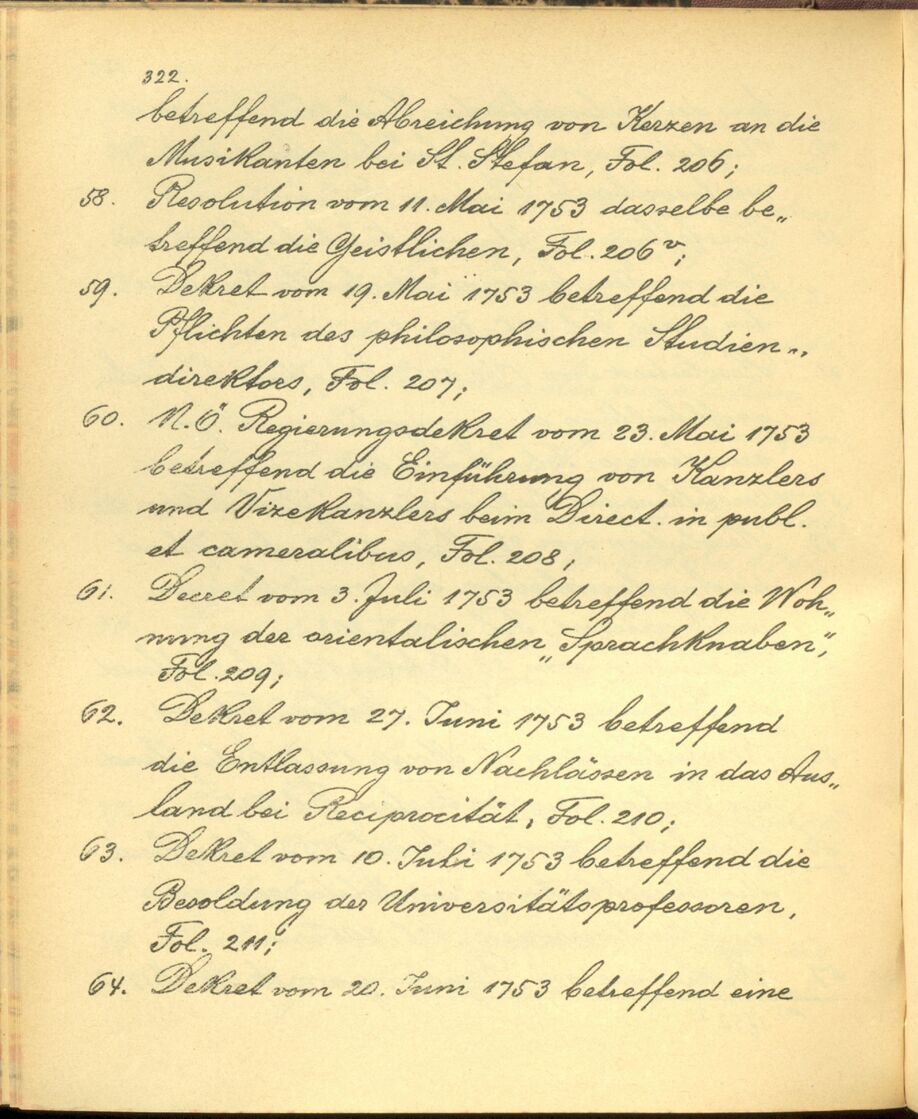 322.
betreffend die Abreichung von Kerzen an die
Musikanten bei St. Stefan, Fol. 206;
58. Resolution vom 11. Mai 1753 dasselbe be„
treffend die Geistlichen, Fol. 206v;
59. Dekret vom 19. Mai 1753 betreffend die
Pflichten des philosophischen Studien„
direktors, Fol. 207;
60. N.Ö. Regierungsdekret vom 23. Mai 1753
betreffend die Einführung von Kanzlers
und Vizekanzlers beim Direct. in publ.
et cameralibus, Fol. 208;
61. Decret vom 3. Juli 1753 betreffend die Woh„
nung der orientalischen „Sprachknaben“,
Fol. 209;
62. Dekret vom 27. Juni 1753 betreffend
die Entlassung von Nachlässen in das Aus„
land bei Reciprocität, Fol. 210;
63. Dekret vom 10. Juli 1753 betreffend die
Besoldung der Universitätsprofessoren,
Fol. 211;
64. Dekret vom 20. Juni 1753 betreffend eine